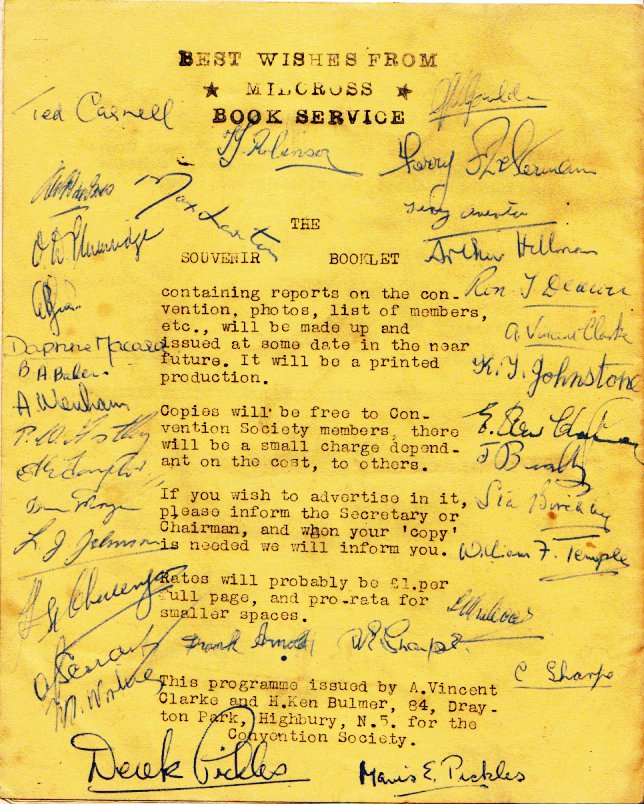 BEST WISHES FROM
★ MILCROSS ★
BOOK SERVICE
Ted Carnell
Max
THE
SOUVENIR BOOKLET
Arthur Hillman
Ron. J Deacon
containing reports on the con-
vention, photos, list of members,
etc., will be made up and
issued at some date in the near
future. It will be a printed
production.
A. Vincent Clarke
Daphne
B A Baker
K. J. Johnstone
A. Wenham
Copies will be free to Con-
vention Society members, there
will be a small charge depend-
ant on the cost, to others.
If you wish to advertise in it,
please inform the Secretary or
Chairman, and when your 'copy'
is needed we will inform you.
L. J. Johnson
William F. Temple
Rates will probably be £1.per
full page, and pro-rata for
smaller spaces.
Frank Arnold
Sharpe
C Sharpe
This programme issued by A.Vincent
Clarke and H.Ken Bulmer, 84, Dray-
ton Park, Highbury, N.5. for the
Convention Society.
Derek Pickles
Mavis E. Pickles